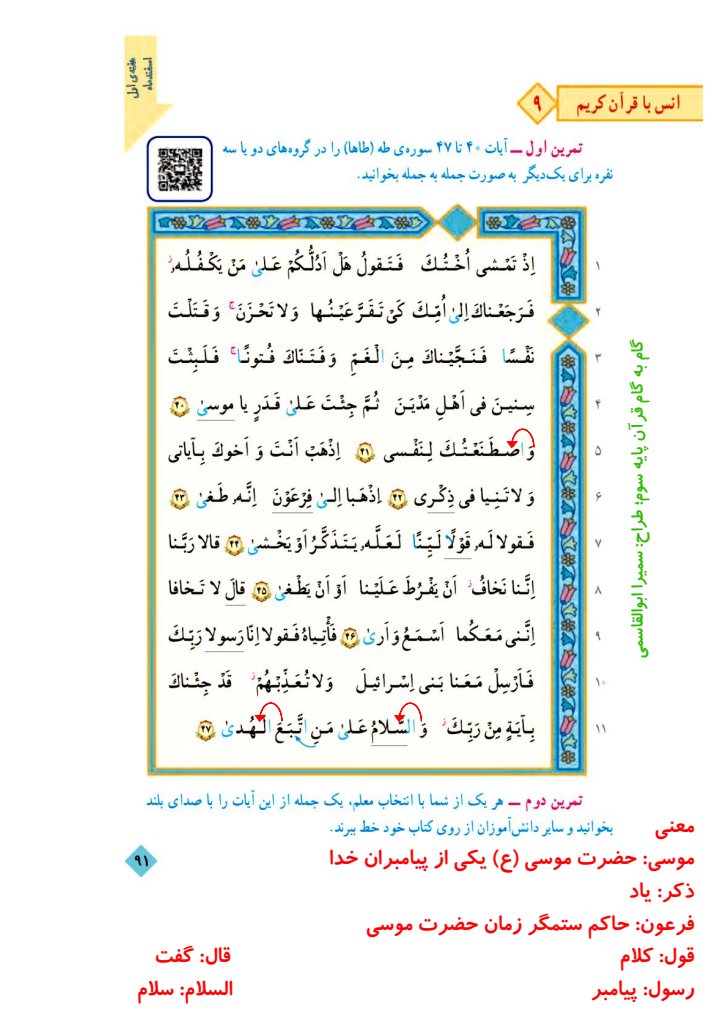 هفته‌ی اول
اسفندماه
انس با قرآن کریم
۹
تمرین اول ــ آیات ۴۰ تا ۴۷ سوره‌ی طه (طاها) را در گروه‌های دو یا سه
نفره برای یک‌دیگر به صورت جمله به جمله بخوانید.
۱ اِذْ تَمْشی اُخْتُكَ فَتَقولُ هَلْ اَدُلُّكُمْ عَلیٰ مَنْ یَكْفُلُهٗۖ
۲ فَرَجَعْناكَ اِلیٰ اُمِّكَ كَیْ تَقَرَّ عَیْنُها وَ لا تَحْزَنَۚ وَ قَتَلْتَ
۳ نَفْسًا فَنَجَّیْناكَ مِنَ الْغَمِّ وَ فَتَنّاكَ فُتونًاۚ فَلَبِثْتَ
۴ سِنینَ فی اَهْلِ مَدْیَنَ ثُمَّ جِئْتَ عَلیٰ قَدَرٍ یا موسیٰ ۴۰
۵ وَ اصْطَنَعْتُكَ لِنَفْسی ۴۱ اِذْهَبْ اَنْتَ وَ اَخوكَ بِآیاتی
۶ وَ لا تَنِیا فی ذِكْری ۴۲ اِذْهَبا اِلیٰ فِرْعَوْنَ اِنَّهٗ طَغیٰ ۴۳
۷ فَقولا لَهٗ قَوْلًا لَیِّنًا لَعَلَّهٗ یَتَذَكَّرُ اَوْ یَخْشیٰ ۴۴ قالا رَبَّنا
۸ اِنَّنا نَخافُ اَنْ یَفْرُطَ عَلَیْنا اَوْ اَنْ یَطْغیٰ ۴۵ قالَ لا تَخافا
۹ اِنَّنی مَعَكُما اَسْمَعُ وَ اَریٰ ۴۶ فَأْتِیاهُ فَقولا اِنّا رَسولا رَبِّكَ
۱۰ فَاَرْسِلْ مَعَنا بَنی اِسْرائیلَ وَ لا تُعَذِّبْهُمْۖ قَدْ جِئْناكَ
۱۱ بِآیَةٍ مِنْ رَبِّكَۖ وَ السَّلامُ عَلیٰ مَنِ اتَّبَعَ الْهُدیٰ ۴۷
گام به گام قرآن پایه سوم: طراح: سمیرا ابوالقاسمی
تمرین دوم ــ هر یک از شما با انتخاب معلم، یک جمله از این آیات را با صدای بلند
بخوانید و سایر دانش‌آموزان از روی کتاب خود خط ببرند.
معنی
موسی: حضرت موسی (ع) یکی از پیامبران خدا
۹۱
ذکر: یاد
فرعون: حاکم ستمگر زمان حضرت موسی
قول: کلام قال: گفت
رسول: پیامبر السلام: سلام